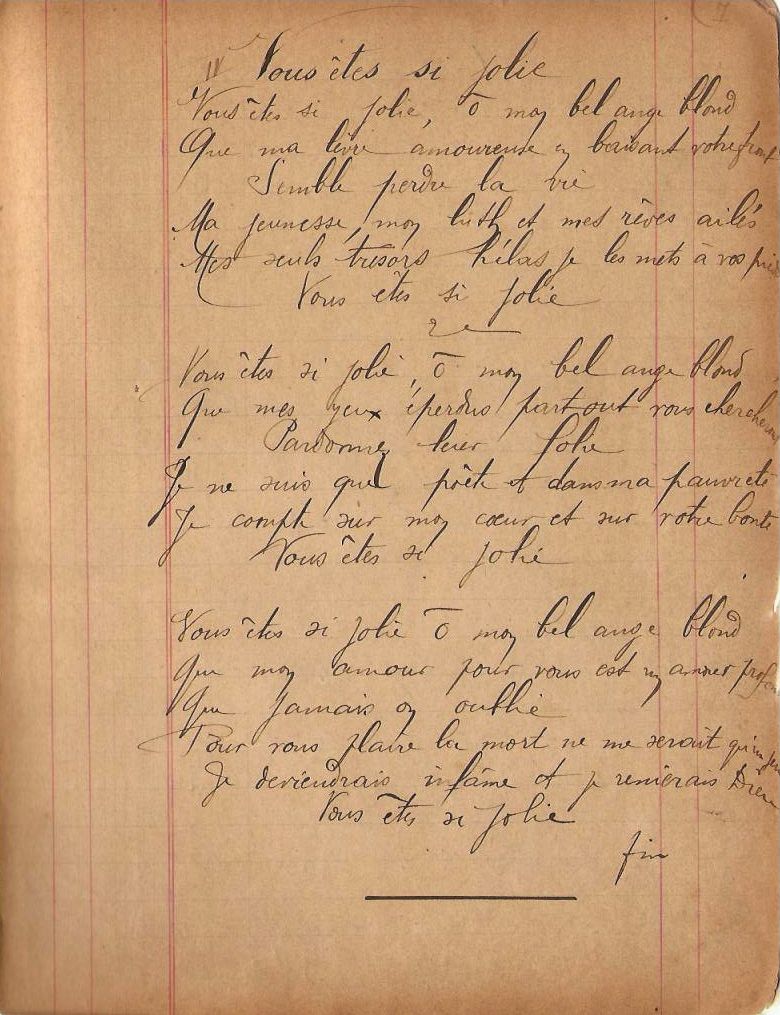 7
IV Vous êtes si jolie
Vous êtes si jolie, ô mon bel ange blond
Que ma lèvre amoureuse en baisant votre front
Semble perdre la vie
Ma jeunesse, mon luth et mes rêves ailés
Mes seuls trésors hélas je les mets à vos pieds
Vous êtes si jolie
2e
Vous êtes si jolie, ô mon bel ange blond
Que mes yeux éperdus partout vous chercheron
Pardonnez leur folie
Je ne suis que poète et dans ma pauvreté
Je compte sur mon cœur et sur votre bonté
Vous êtes si jolie
Vous êtes si jolie ô mon bel ange blond
Que mon amour pour vous est un amour profon
Que jamais on oublie
Pour vous plaire la mort ne me serait qu'un jeu
Je deviendrais infâme et je renierais Dieu
Vous êtes si jolie
fin